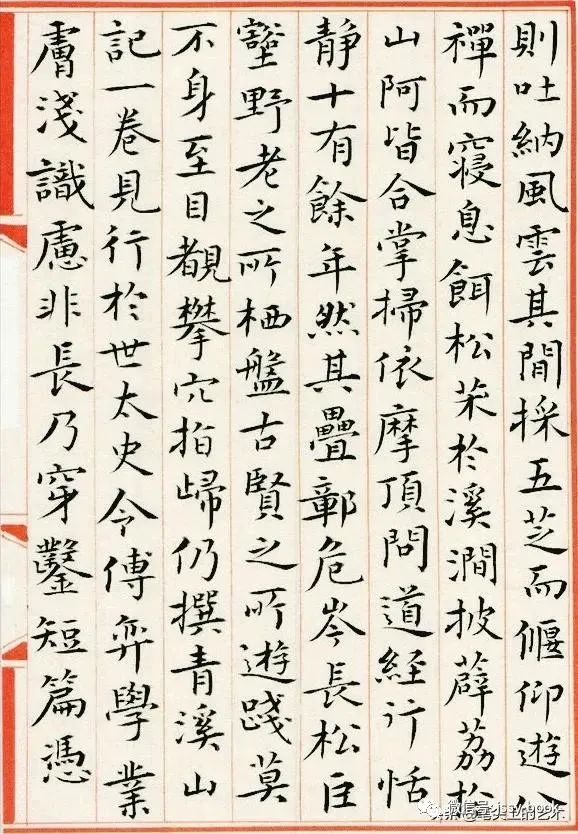 則吐納風雲其間採五芝而偃仰遊八
禪而寢息餌松茱於溪澗披薜荔於
山阿皆合掌掃依摩頂問道経行恬
静十有餘年然其疊鄣危岑長松巨
壑野老之所栖盤古賢之所遊踐莫
不身至目覩攀穴指歸仍撰青溪山
記一卷見行於世太史令傅弈學業
膚淺識慮非長乃穿鑿短篇憑
微信号: jssy-book